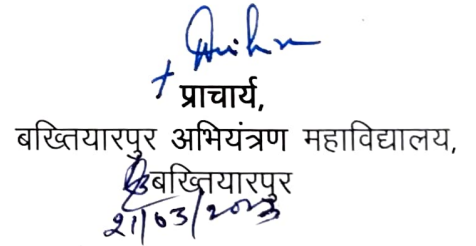 प्राचार्य,
बख्तियारपुर अभियंत्रण महाविद्यालय,
बख्तियारपुर
21/03/2023